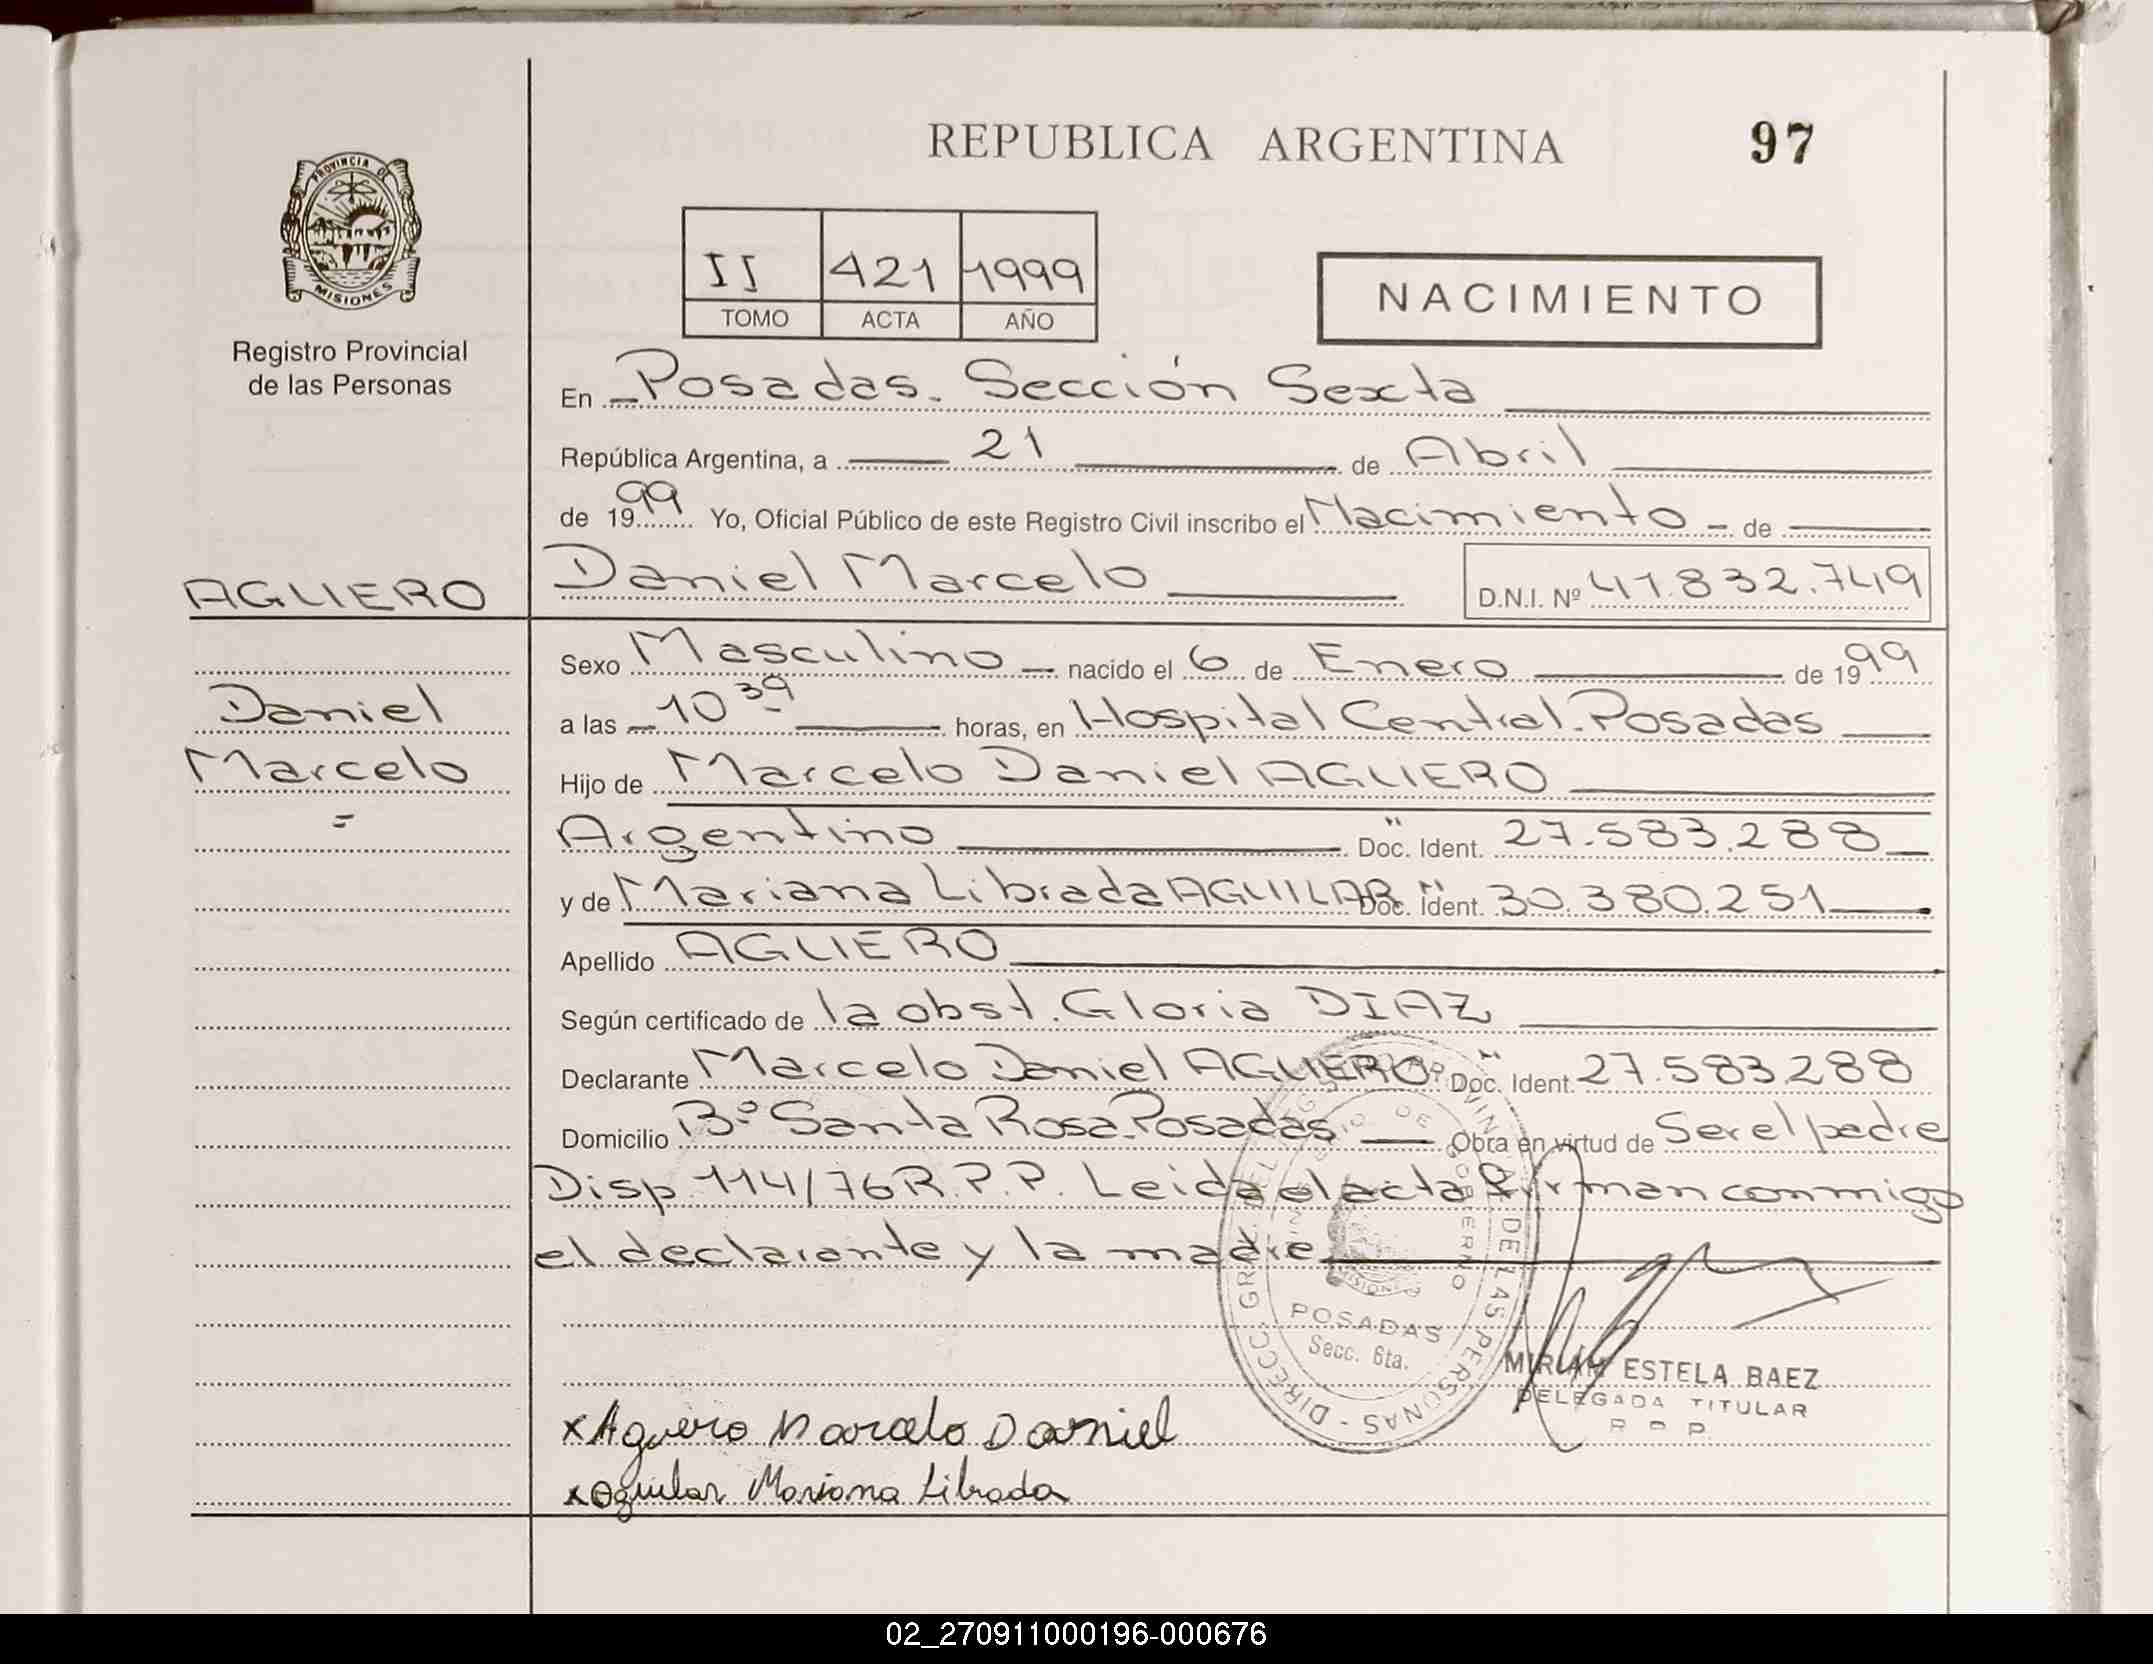 REPUBLICA ARGENTINA
97
PROVINCIA DE
MISIONES
Registro Provincial
de las Personas
II 421 1999
TOMO ACTA AÑO
NACIMIENTO
En Posadas. Sección Sexta
República Argentina, a 21 de Abril
de 1999 Yo, Oficial Público de este Registro Civil inscribo el Nacimiento - de
AGUERO
Daniel Marcelo D.N.I. Nº 41.832.749
Sexo Masculino nacido el 6 de Enero de 1999
Daniel
a las 10 39 horas, en Hospital Central. Posadas
Marcelo
=
Hijo de Marcelo Daniel AGUERO
Argentino Doc. Ident. 27.583.288
y de Mariana Librada AGUILAR Doc. Ident. 30.380.251
Apellido AGUERO
Según certificado de la obst. Gloria DIAZ
Declarante Marcelo Daniel AGUERO Doc. Ident. 27.583.288
Domicilio Bº Santa Rosa. Posadas Obra en virtud de Ser el padre
Disp. 114/76 R.P.P. Leida el acta firman conmigo
el declarante y la madre
POSADAS
Secc. 6ta.
MIRIAM ESTELA BAEZ
DELEGADA TITULAR
R P P
x Aguero Marcelo Daniel
x Aguilar Mariana Librada
02_270911000196-000676